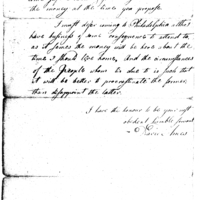 the money at the time you propose.
I must defer coming to Philadelphia till I
have business of some consequence to attend to,
as it seems the money will be here about the
time I should be home, and the circumstances
of the People whom is due to is such that
it will be better to procrastinate the former
than disappoint the latter.
I have the honour to be your most
obedient humble servant